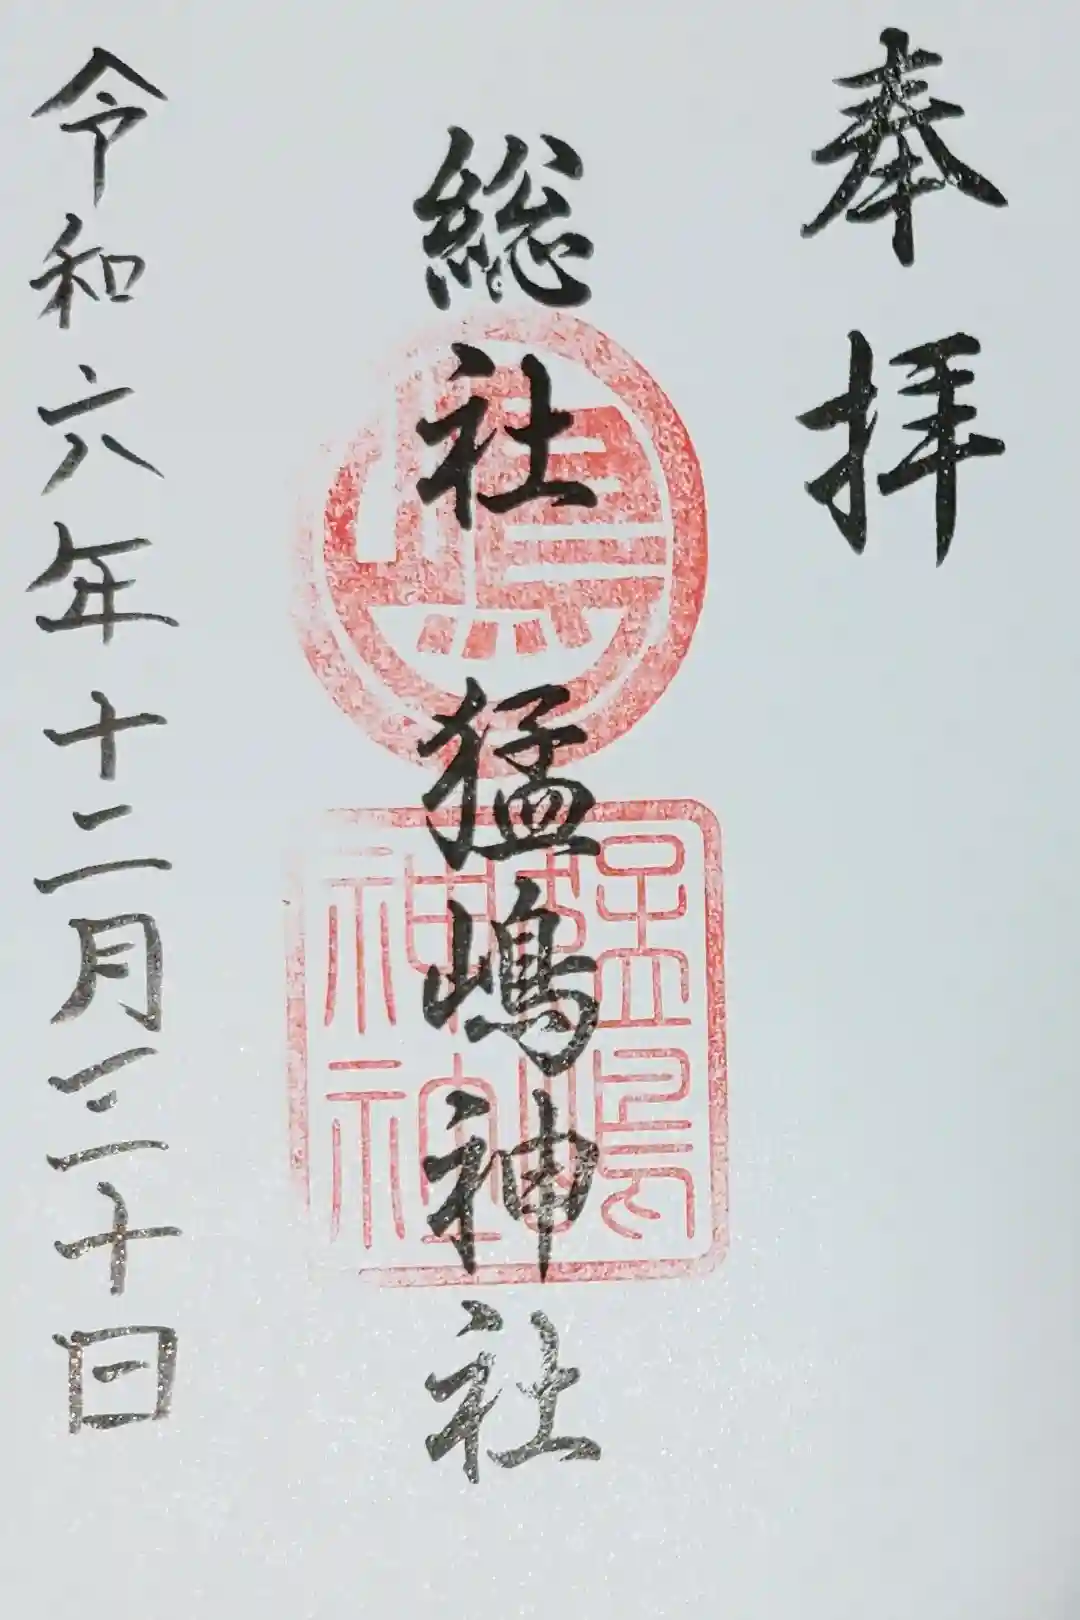 奉拝
総社猛嶋神社
猛嶋
神社
令和六年十二月三十日